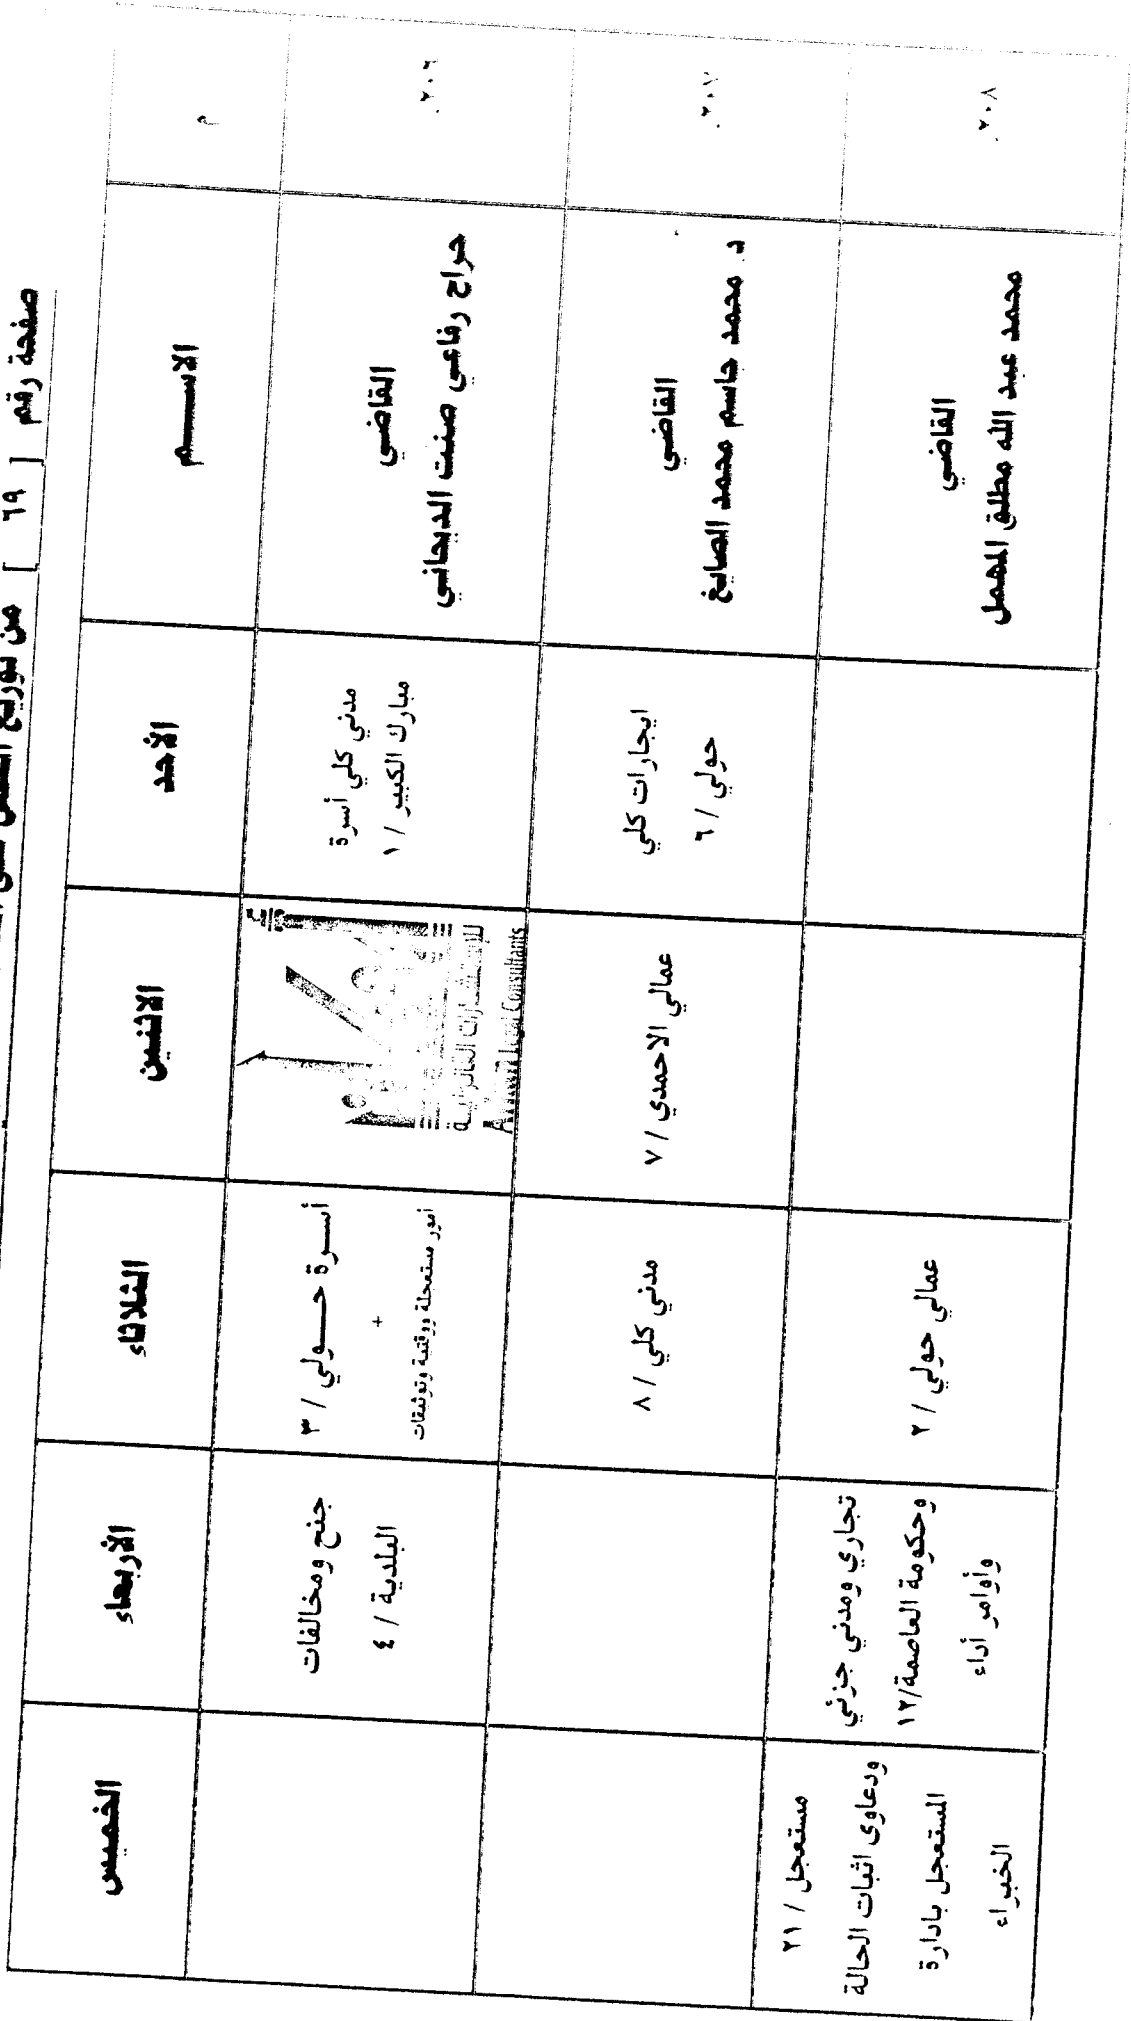 صفحة رقم [ ٦٩ ] من توزيع
م
الاســـم
الأحد
الاثنين
الثلاثاء
الأربعاء
الخميس
٢٠٦.
القاضي
حراج رفاعي صنت الديحاني
مدني كلي أسرة
مبارك الكبير / ١
للإستشارات القانونية
Legal Consultants
أسرة حـولي / ٣
+
أمور مستعجلة ووقتية وتوثيقات
جنح ومخالفات
البلدية / ٤
٢٠٧.
القاضي
د. محمد جاسم محمد الصايغ
ايجارات كلي
حولي / ٦
عمالي الاحمدي / ٧
مدني كلي / ٨
٢٠٨.
القاضي
محمد عبد الله مطلق المهمل
عمالي حولي / ٢
تجاري ومدني جزئي
وحكومة العاصمة/١٢
وأوامر أداء
مستعجل / ٢١
ودعاوى اثبات الحالة
المستعجل بادارة
الخبراء